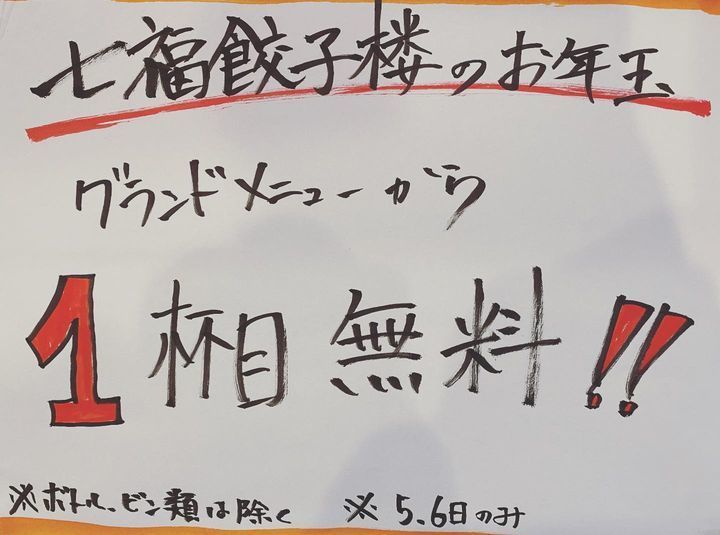 七福餃子楼のお年玉
グランドメニューから
1杯目無料!!
※ボトル、ビン類は除く ※5、6日のみ